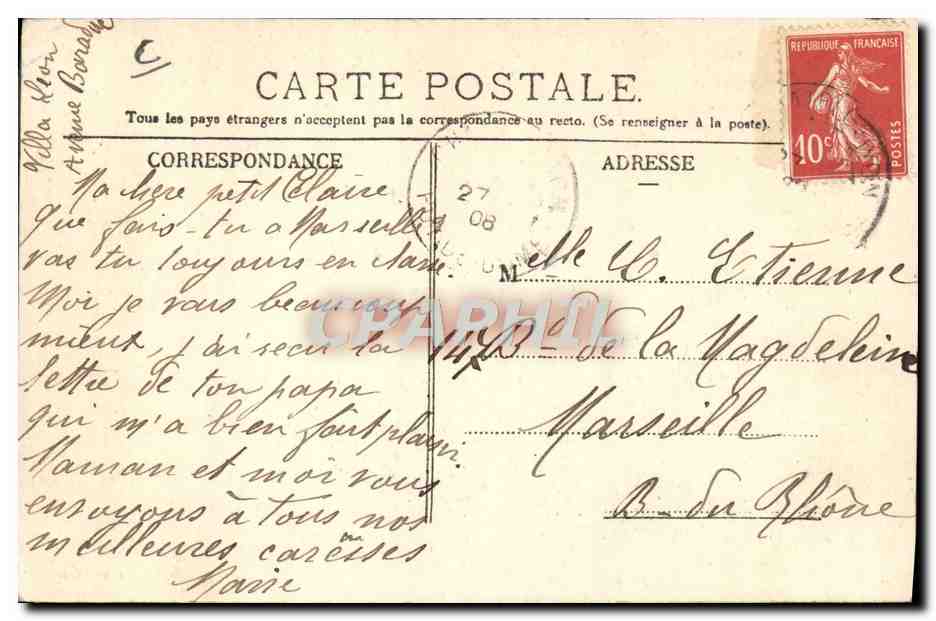 Villa Léon
Avenue Baraduc
CARTE POSTALE.
Tous les pays étrangers n'acceptent pas la correspondance au recto. (Se renseigner à la poste).
CORRESPONDANCE
Ma chere petit Claire
que fais-tu a Marseille
vas tu toujours en classe.
Moi je vais beaucoup
mieux, j'ai recu la
lettre de ton papa
qui m'a bien fait plaisir.
Maman et moi vous
envoyons à tous nos
meilleures caresses
Marie
ADRESSE
Melle C. Etienne
147 Bd de la Magdeleine
Marseille
B-du Rhône
REPUBLIQUE FRANÇAISE
10c
POSTES
27
08
CPARHIL